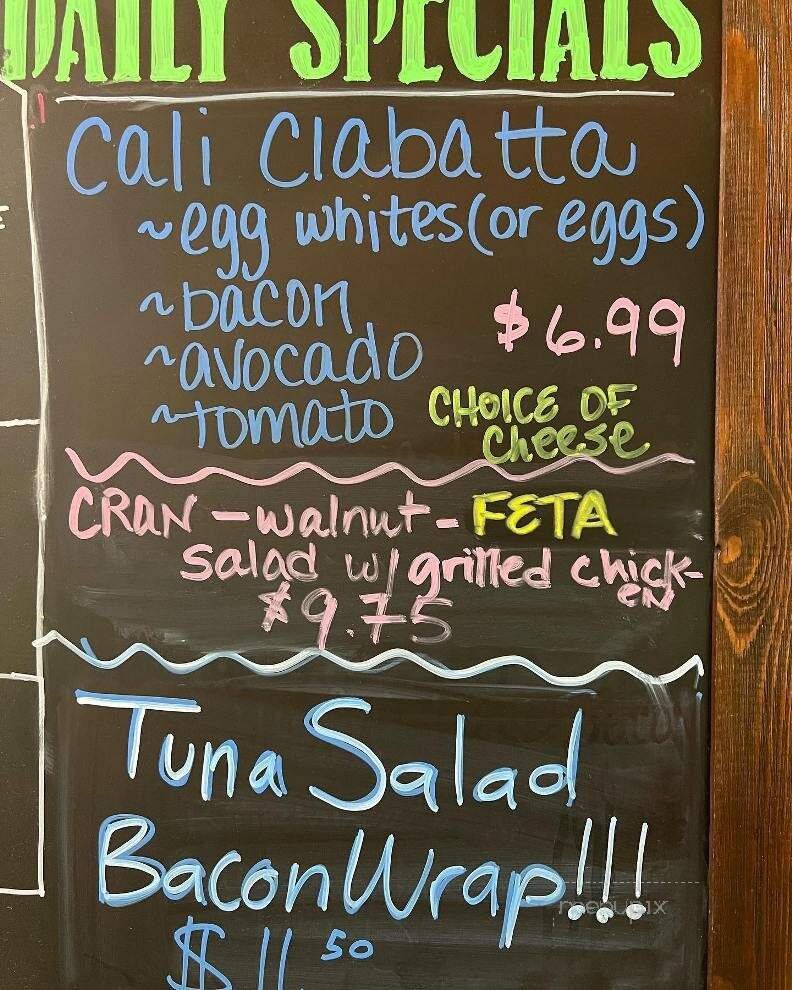 DAILY SPECIALS
Cali Ciabatta
~egg whites (or eggs)
~bacon
$6.99
~avocado
~tomato
CHOICE OF
Cheese
CRAN - walnut - FETA
salad w/ grilled chick-
en
$9.75
Tuna Salad
Bacon Wrap!!!
$11.50
menupix